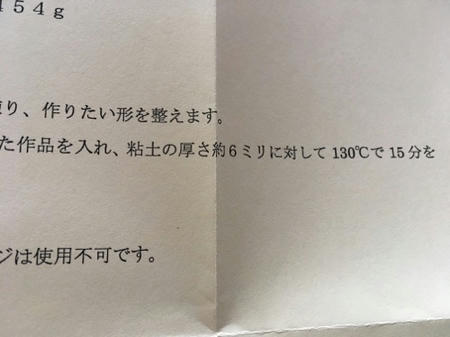 454g
り、作りたい形を整えます。
た作品を入れ、粘土の厚さ約6ミリに対して130℃で15分を
ジは使用不可です。